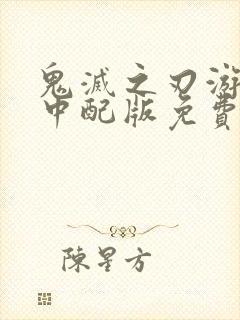 鬼滅之刃游
中配版免費
陳星方